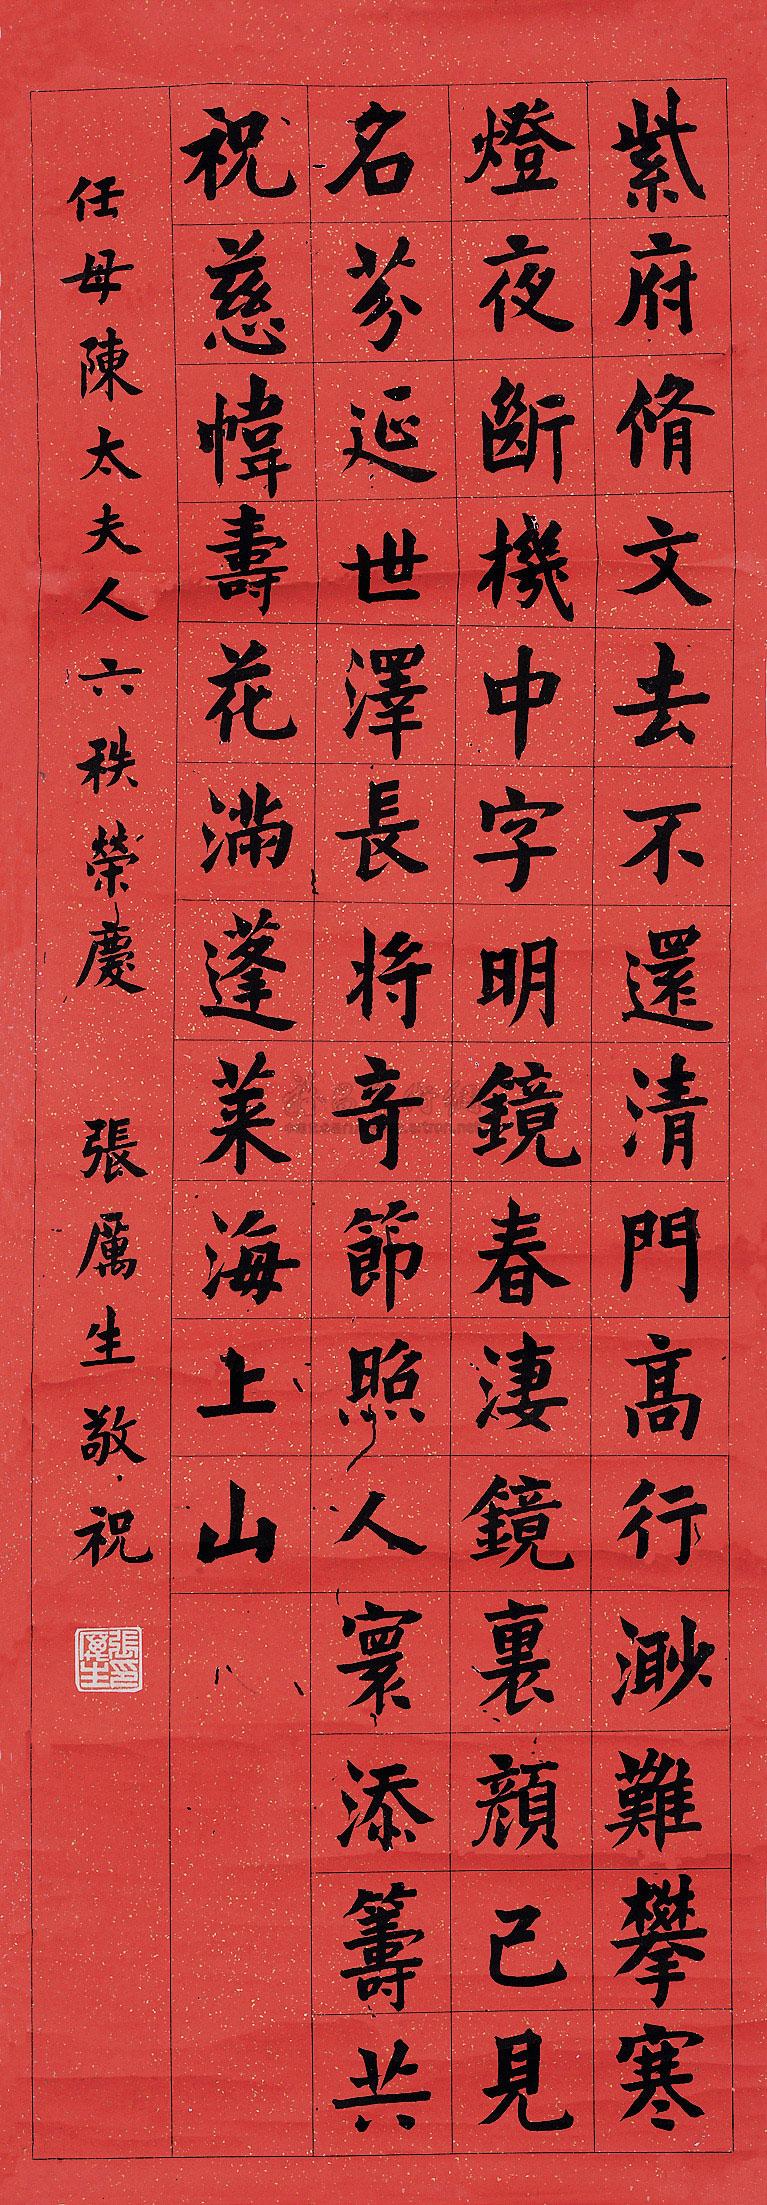 紫府脩文去不還清門高行渺難攀寒
燈夜斷機中字明鏡春淒鏡裏顏已見
名芬延世澤長將奇節照人寰添籌共
祝慈幃壽花滿蓬萊海上山
任母陳太夫人六秩榮慶 張厲生敬祝
張厲生印